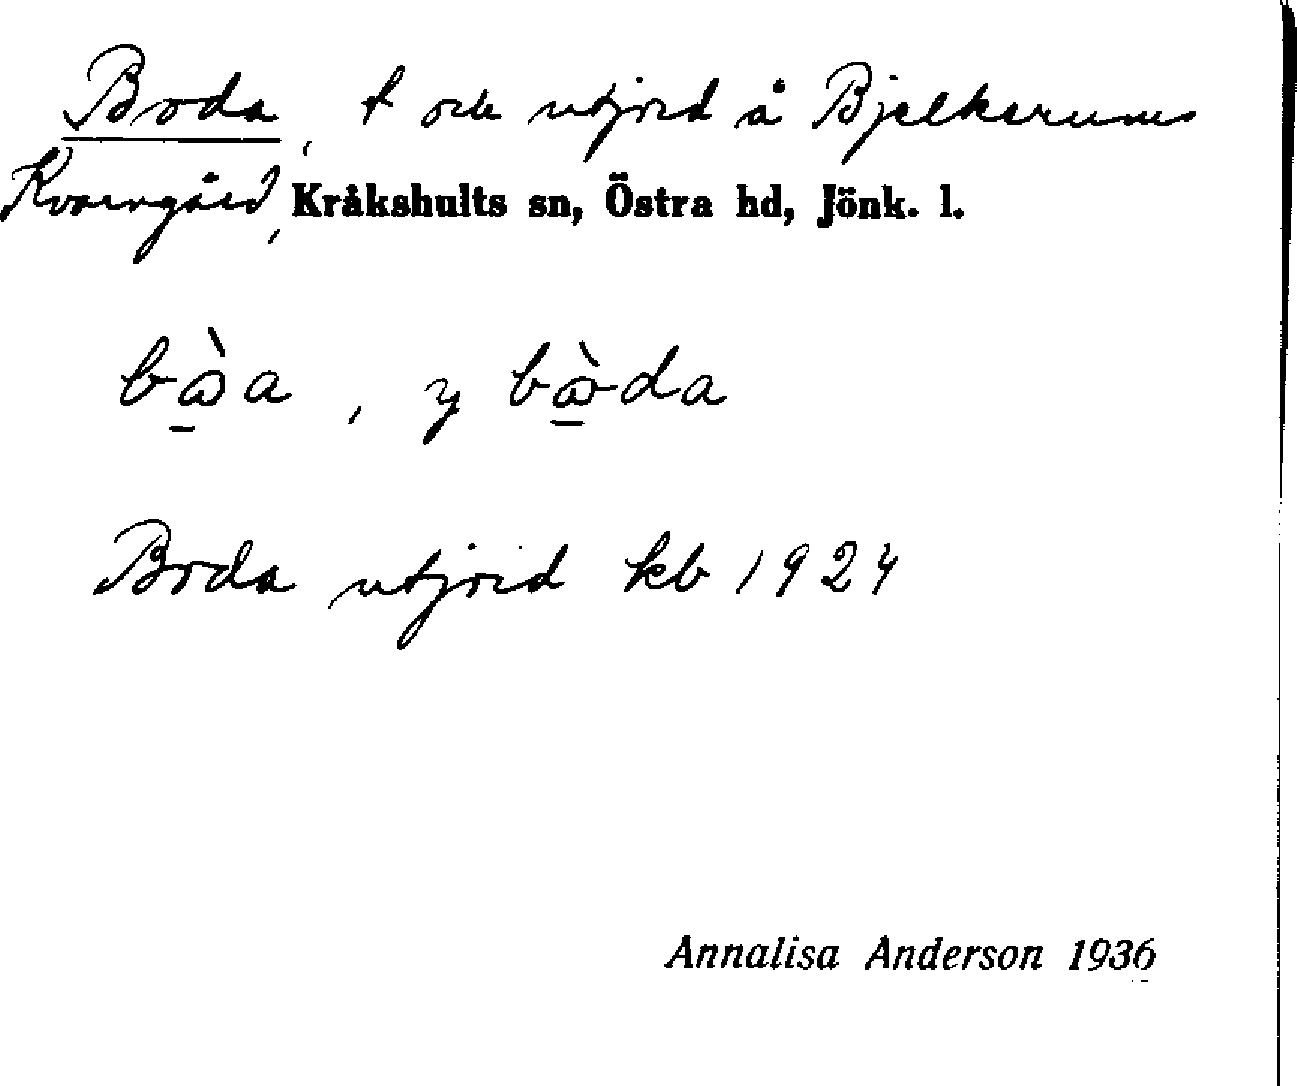 Boda, t och utjord å Bjelkerums
Kvarngård, Kråkshults sn, Östra hd, Jönk. l.
bὼ̲a, y bὼ̲da
Boda utjord kb 1924
Annalisa Anderson 1936